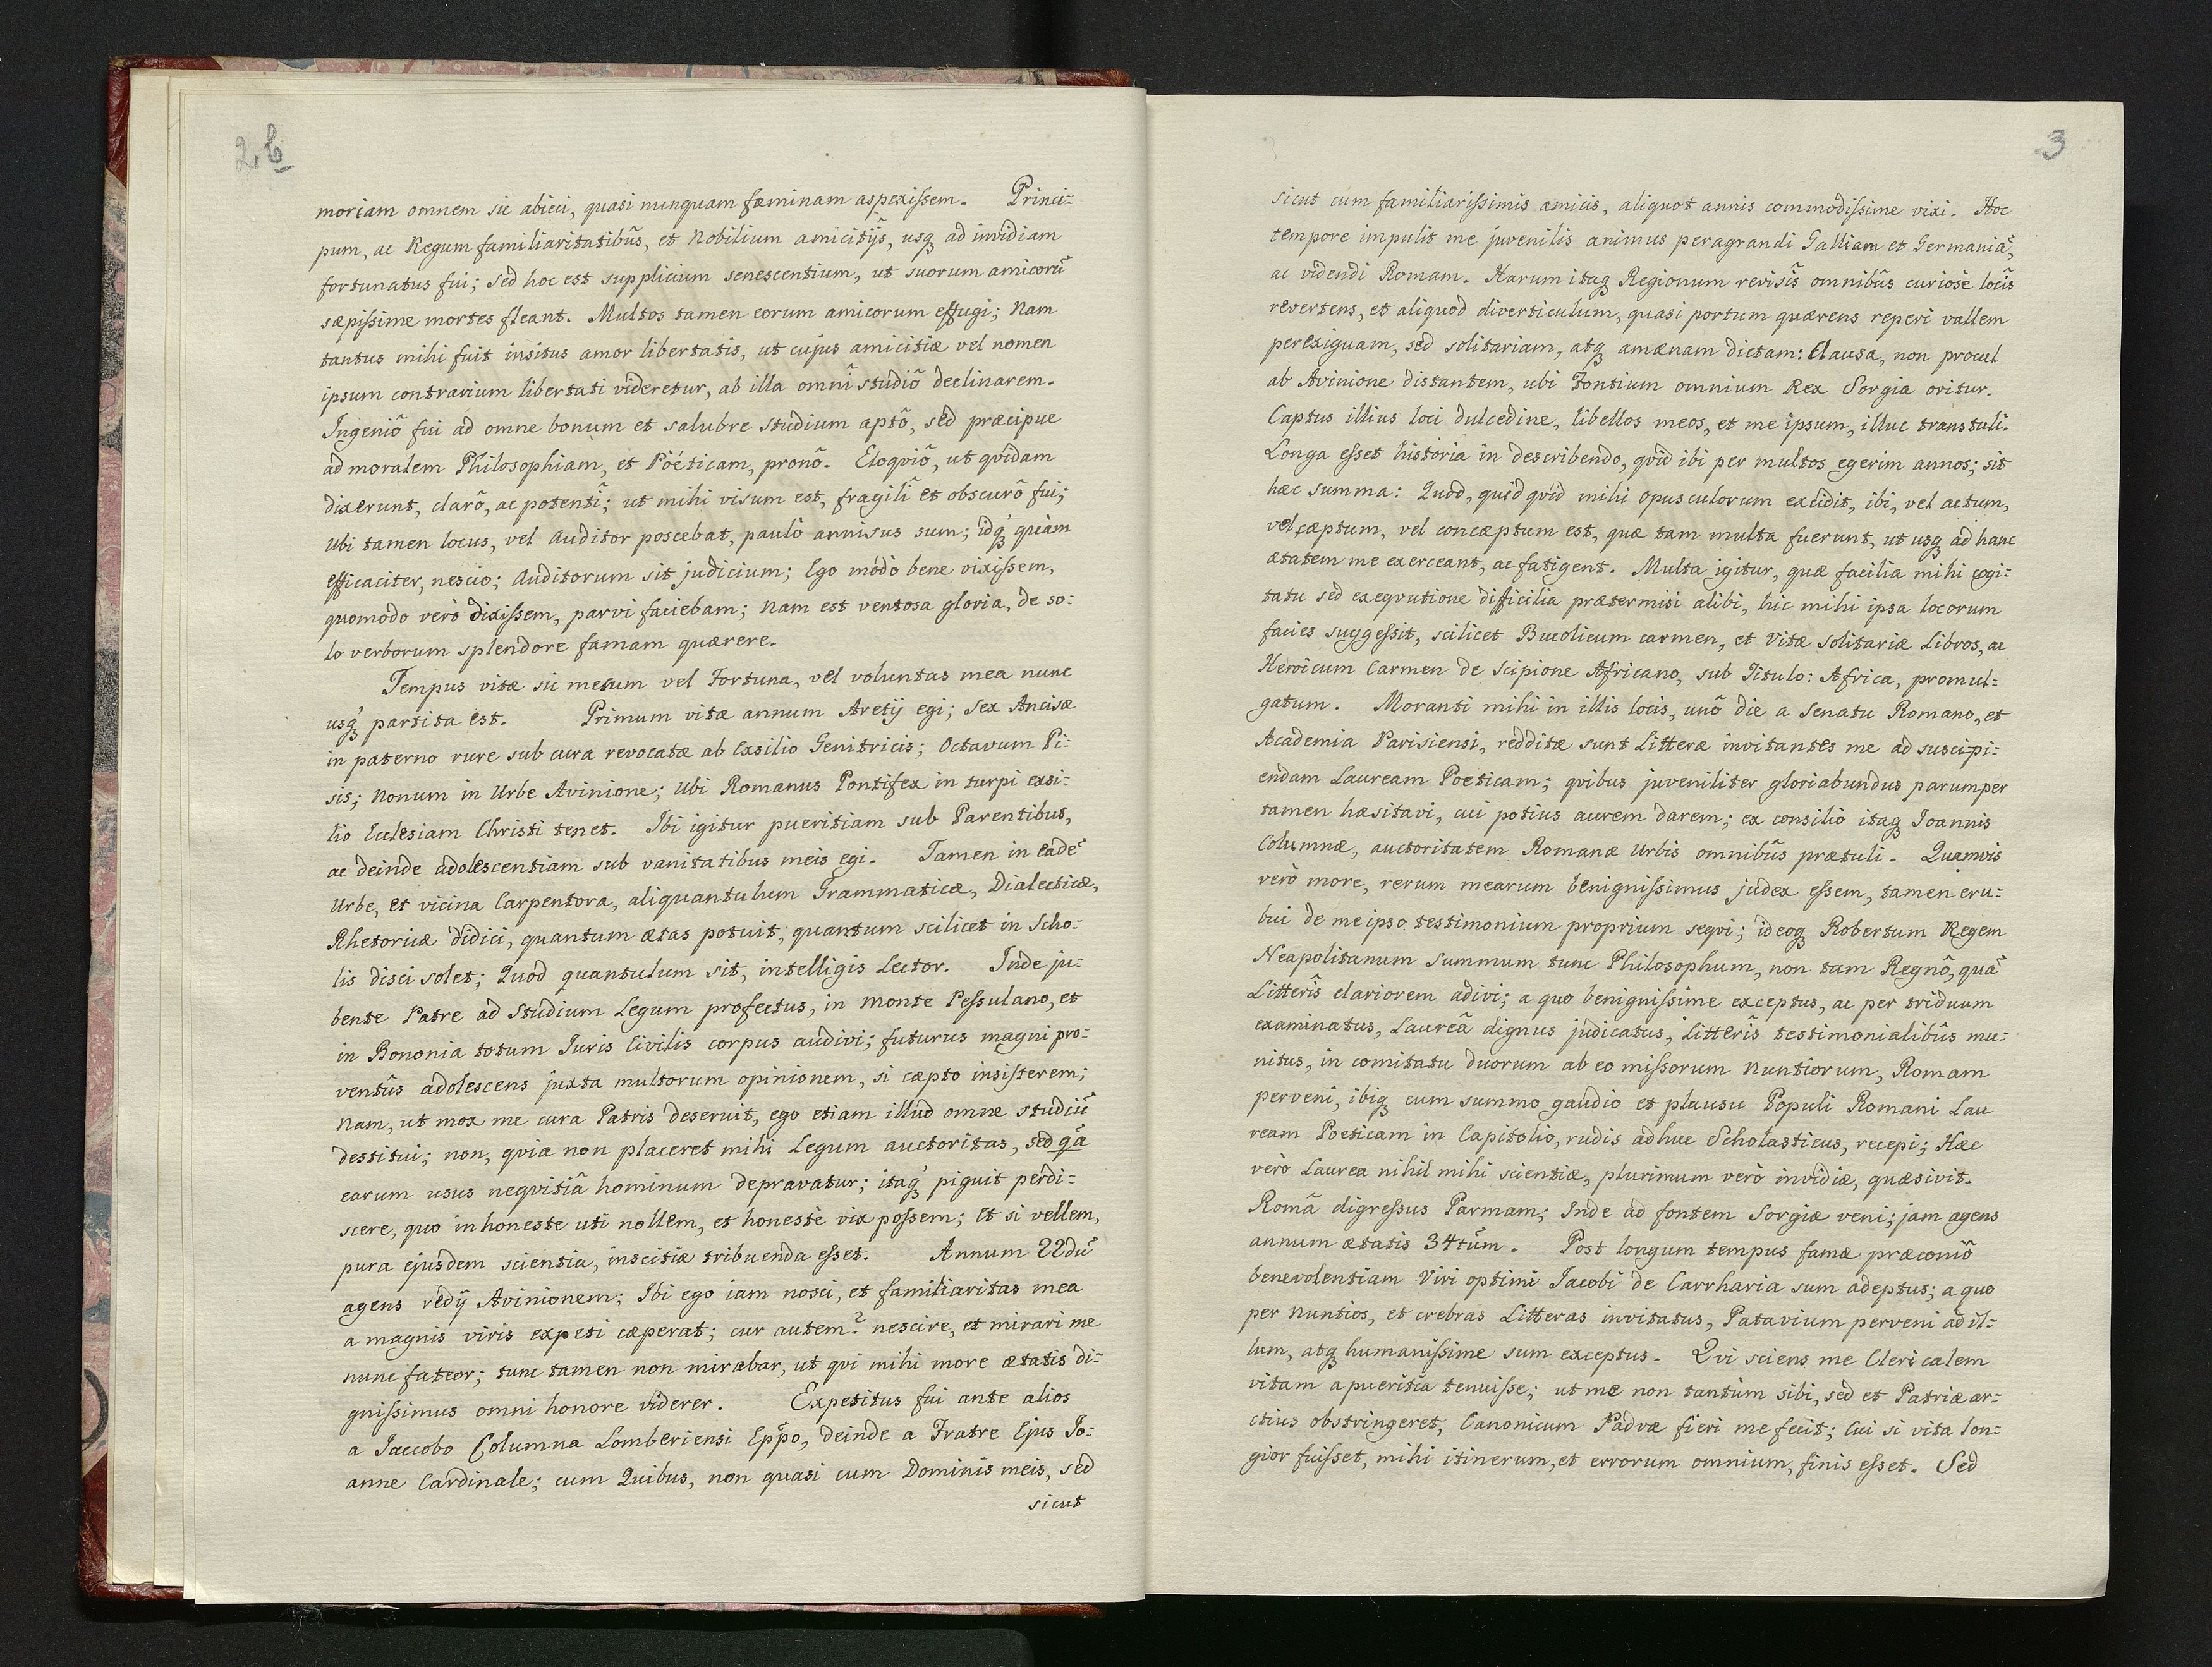 2.b
moriam omnem sic abieci, quasi nunquam fæminam aspexiſsem. Princi=
pum, ac Regum familiaritatibûs, et Nobilium amicitijs, usqꝫ ad invidiam
fortunatus fui; sed hoc est supplicium senescentium, ut suorum amicorũ
sæpiſsime mortes fleant. Multos tamen eorum amicorum effugi; Nam
tantus mihi fuit insitus amor libertatis, ut cujus amicitiæ vel nomen
ipsum contrarium libertati videretur, ab illa omnî studiô declinarem.
Ingeniô fui ad omne bonum et salubre studium aptô, sed præcipue
ad moralem Philosophiam, et Pöéticam, pronô. Eloqviô, ut qvidam
dixerunt, clarô, ac potentî; ut mihi visum est, fragilî et obscurô fui;
Ubi tamen locus, vel Auditor poscebat, paulò annisus sum; idqꝫ quàm
efficaciter, nescio; Auditorum sit judicium; Ego módo bene vixiſsem,
quomodo verò dixiſsem, parvi faciebam; Nam est ventosa gloria, de so:
lo verborum splendore famam quærere.
Tempus vitæ sic mecum vel Fortuna, vel voluntas mea nunc
usqꝫ partita est. Primum vitæ annum Aretij egi; Sex Ancisæ
in paterno rure sub cura revocatæ ab Exsilio Genitricis; Octavum Pi:
sis; Nonum in Urbe Avinione; Ubi Romanus Pontifex in turpi exsi:
lio Ecclesiam Christi tenet. Ibi igitur pueritiam sub Parentibus,
ac deinde adolescentiam sub vanitatibus meis egi. Tamen in eadẽ
Urbe, et vicina Carpentora, aliquantulum Grammaticæ, Dialecticæ,
Rhetoricæ didici, quantum ætas potuit, quantum scilicet in Scho:
lis disci solet; Quod quantulum sit, intelligis Lector. Inde ju:
bente Patre ad Studium Legum profectus, in Monte Peſsulano, et
in Bononia totum Juris Civilis corpus audivi; futurus magni pro:
ventûs adolescens juxta multorum opinionem, si cæpto insisterem;
Nam, ut mox me cura Patris deseruit, ego etiam illud omne studiũ
destitui; non, qvia non placeret mihi Legum auctoritas, sed qꝫã
earum usus neqvitiâ hominum depravatur; itaqꝫ piguit perdi=
scere, quo inhoneste uti nollem, et honestè vix poſsem; Et si vellem,
pura ejusdem scientia, inscitiæ tribuenda eſset. Annum 22dũ
agens redij Avinionem; Ibi ego iam nosci, et familiaritas mea
a magnis viris expeti cæperat; cur autem? nescire, et mirari me
nunc fateor; tunc tamen non mirabar, ut qvi mihi more ætatis di=
gniſsimus omni honore viderer. Expetitus fui ante alios
a Jaccobo Columna Lomberiensi Eppo, deinde a Fratre Ejus Jo:
anne Cardinale; cum Quibus, non quasi cum Dominis meis, sed
sicut
3
sicut cum familiariſsimis amicis, aliquot annis commodiſsime vixi. Hoc
tempore impulit me juvenilis animus peragrandi Galliam et Germaniã,
ac videndi Romam. Harum itaqꝫ Regionum revisîs omnibûs curiosè locîs
revertens, et aliquod diverticulum, quasi portum quærens reperi vallem
perexiguam, sed solitariam, atqꝫ amænam dictam: Clausa, non procul
ab Avinione distantem, ubi Fontium omnium Rex Sorgia oritur.
Captus illius loci dulcedine, libellos meos, et me ipsum, illuc transtuli.
Longa eſset historia in describendo, qvid ibi per multos egerim annos; sit
hæc summa: Quod, quid qvid mihi opusculorum excidit, ibi, vel actum,
vel cæptum, vel concæptum est, quæ tam multa fuerunt, ut usqꝫ ad hanc
ætatem me exerceant, ac fatigent. Multa igitur, quæ facilia mihi cogi:
tatu sed exeqvutione difficilia prætermisi alibi, hic mihi ipsa locorum
facies suggeſsit, scilicet Bucolicum carmen, et Vitæ Solitariæ Libros, ac
Heroicum Carmen de Scipione Africano, sub Titulo: Africa, promul=
gatum. Moranti mihi in illis locis, unô die a Senatu Romano, et
Academia Parisiensi, redditæ sunt Litteræ invitantes me ad suscipi=
endam Lauream Poeticam; qvibus juveniliter gloriabundus parumper
tamen hæsitavi, cui potius aurem darem; ex consilio itaqꝫ Joannis
Columnæ, auctoritatem Romanæ Urbis omnibûs prætuli. Quamvis
verò more, rerum mearum benigniſsimus judex eſsem, tamen eru:
bui de me ipso testimonium proprium seqvi; ideoqꝫ Robertum Regem
Neapolitanum Summum tunc Philosophum, non tam Regnô, quã
Litterîs clariorem adivi; a quo benigniſsime exceptus, ac per triduum
examinatus, Laureâ dignus judicatus, Litterîs testimonialibûs mu:
nitus, in comitatu duorum ab eo miſsorum Nuntiorum, Romam
perveni, ibiqꝫ cum summo gaudio et plausu Populi Romani Lau
ream Poeticam in Capitolio, rudis adhuc Scholasticus, recepi; Hæc
verò Laurea nihil mihi scientiæ, plurimum verò invidiæ, quæsivit.
Româ digreſsus Parmam; Inde ad fontem Sorgiæ veni; jam agens
annum ætatis 34tũm. Post longum tempus famæ præconiô
benevolentiam Viri optimi Jacobi de Carrharia sum adeptus; a quo
per Nuntios, et crebras Litteras invitatus, Patavium perveni ad il=
lum, atqꝫ humaniſsime sum exceptus. Qvi sciens me Clericalem
vitam a pueritia tenuiſse; ut me non tantùm sibi, sed et Patriæ ar=
ctius obstringeret, Canonicum Padvæ fieri me fecit; Cui si vita lon=
gior fuiſset, mihi itinerum, et errorum omnium, finis eſset. Sed